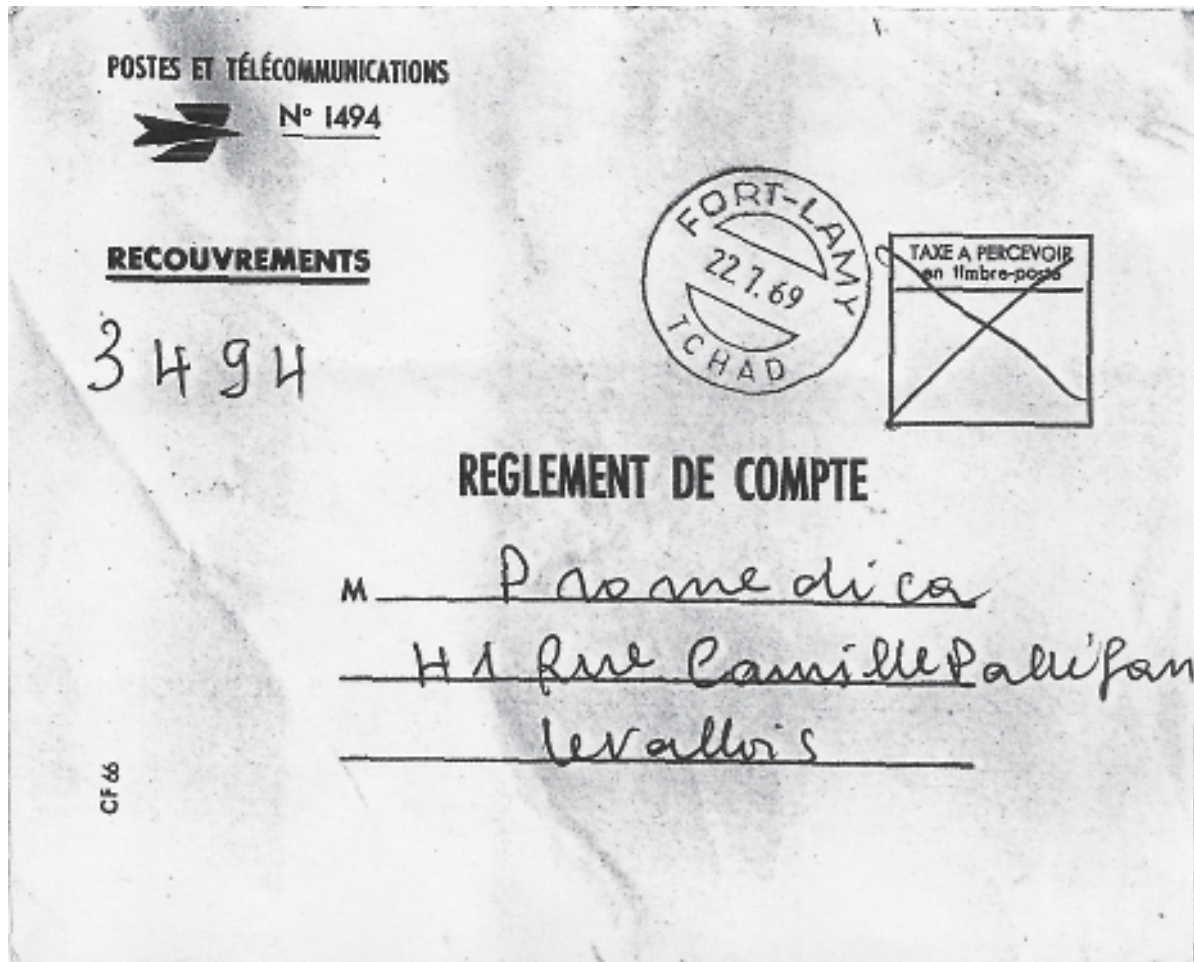 POSTES ET TÉLÉCOMMUNICATIONS
N° 1494
RECOUVREMENTS
3494
FORT-LAMY
22.7.69
TCHAD
TAXE A PERCEVOIR
en timbre-poste
REGLEMENT DE COMPTE
M Promedica
41 Rue Camille
levallois
CF 66